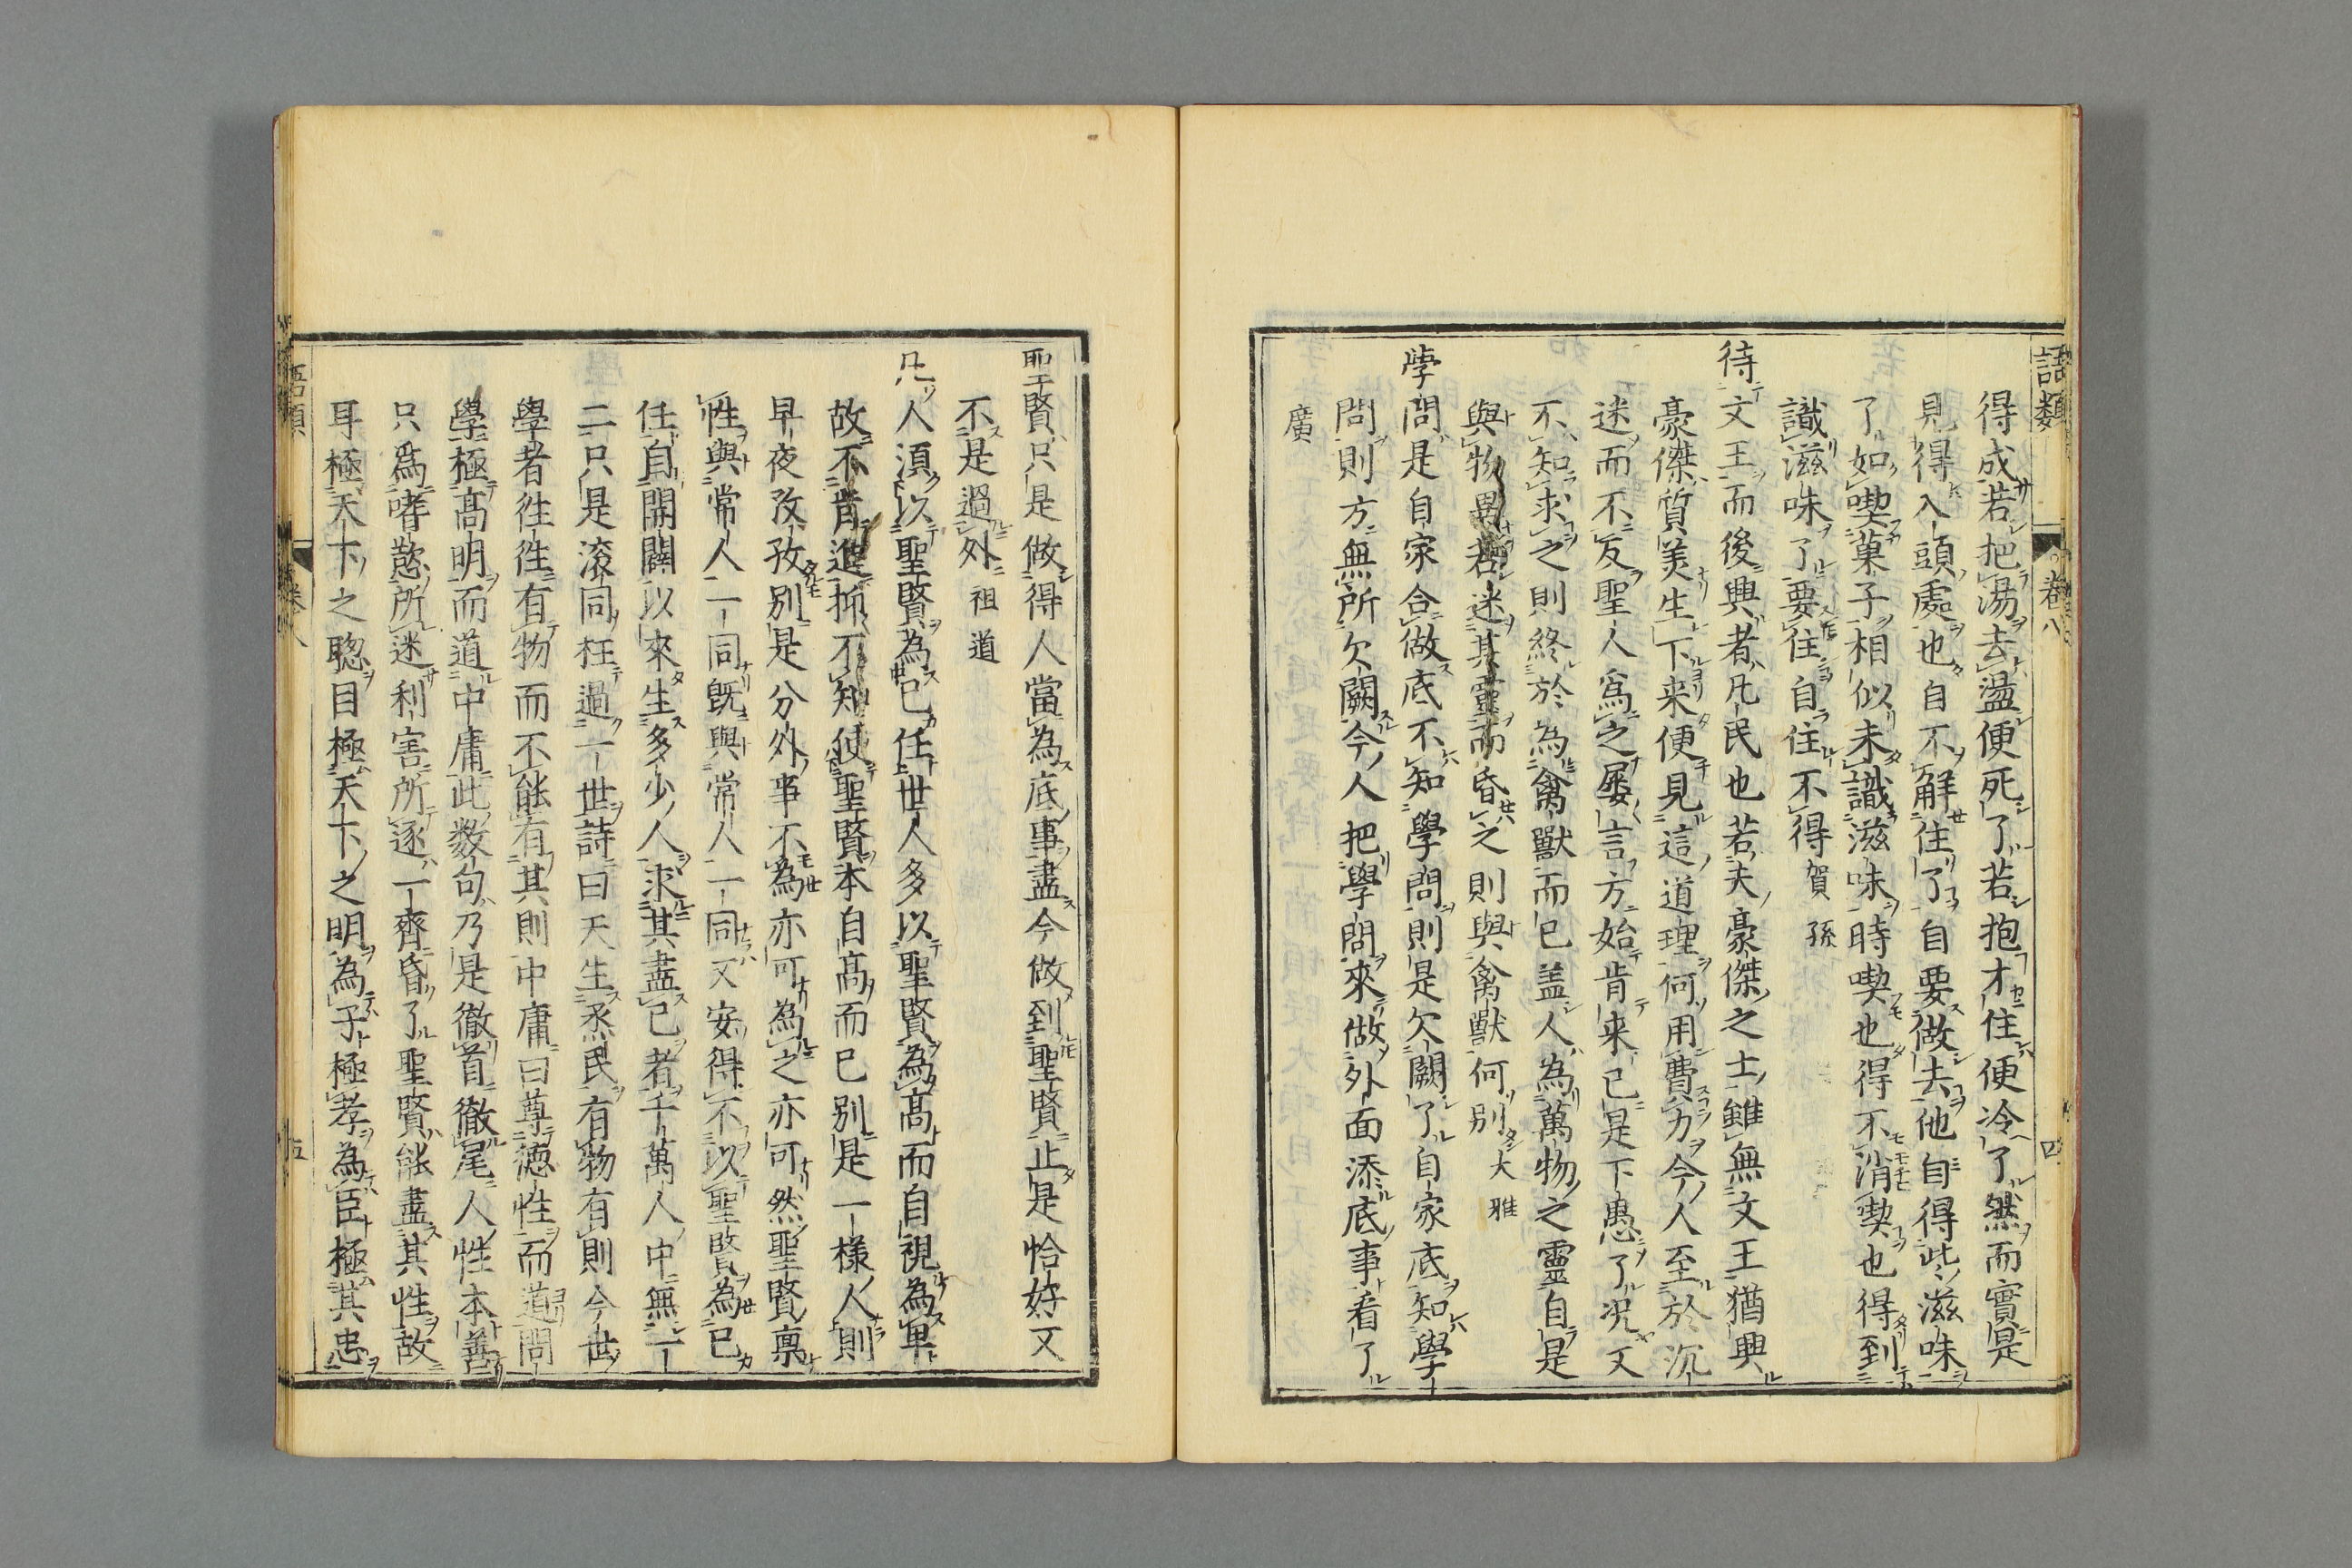 語類
卷八
四
得成若把湯去盪便死了若抱才住便冷了然而實是
見得入頭處也自不解住了自要做去他自得此滋味
了如喫菓子相似未識滋味時喫也得不消喫也得到
識滋味了要住自住不得賀孫
待文王而後興者凡民也若夫豪傑之士雖無文王猶興
豪傑質美生下来便見這道理何用費力今人至於沉
迷而不反聖人爲之屡言方始肯来已是下愚了况又
不知求之則終於為禽獸而已盖人為萬物之靈自是
與物異若迷其靈而昏之則與禽獸何别大雅
學問是自家合做底不知學問則是欠闕了自家底知學
問則方無所欠闕今人把學問來做外面添底事看了
廣
聖賢只是做得人當為底事盡今做到聖賢止是恰好又
不是過外祖道
凡人須以聖賢為己任世人多以聖賢為高而自視為卑
故不肯進抑不知使聖賢本自高而已别是一様人則
早夜孜孜别是分外事不為亦可為之亦可然聖賢禀
性與常人一同既與常人一同又安得不以聖賢為己
任自開闢以來生多少人求其盡己者千萬人中無一
二只是滚同枉過一世詩曰天生烝民有物有則今世
學者徃徃有物而不能有其則中庸曰尊德性而道問
學極高明而道中庸此数句乃是徹首徹尾人性本善
只爲嗜慾所迷利害所逐一齊昏了聖賢能盡其性故
耳極天下之聡目極天下之明為子極孝為臣極其忠
語類
卷八
五